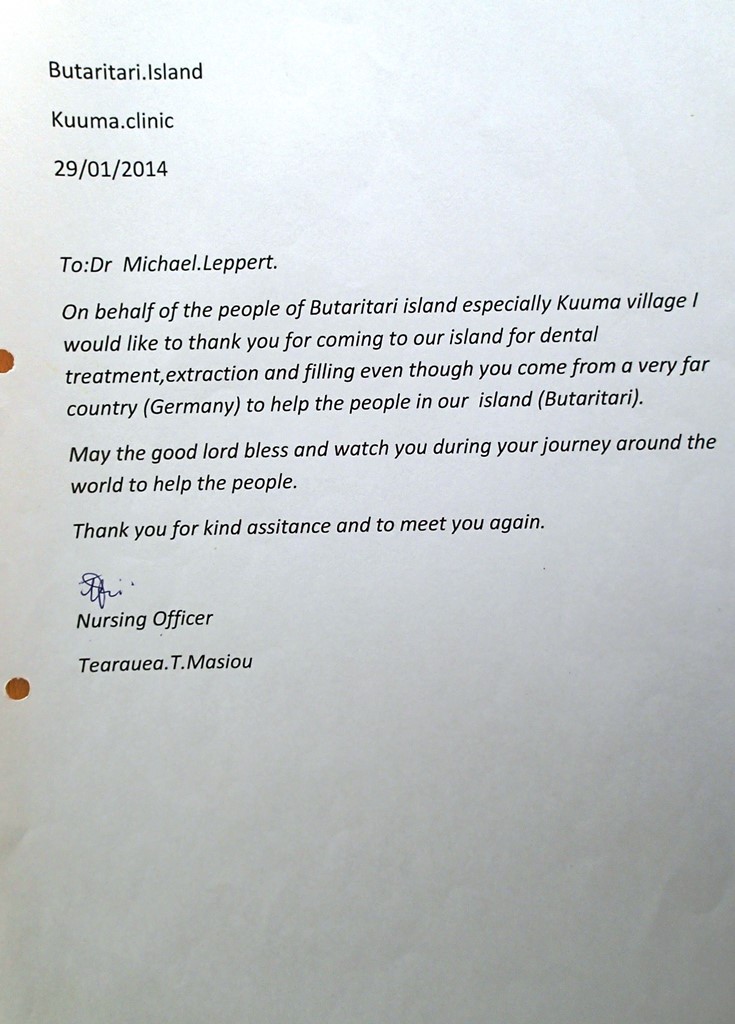 Butaritari.Island
Kuuma.clinic
29/01/2014
To:Dr Michael.Leppert.
On behalf of the people of Butaritari island especially Kuuma village I
would like to thank you for coming to our island for dental
treatment,extraction and filling even though you come from a very far
country (Germany) to help the people in our island (Butaritari).
May the good lord bless and watch you during your journey around the
world to help the people.
Thank you for kind assitance and to meet you again.
Nursing Officer
Tearauea.T.Masiou